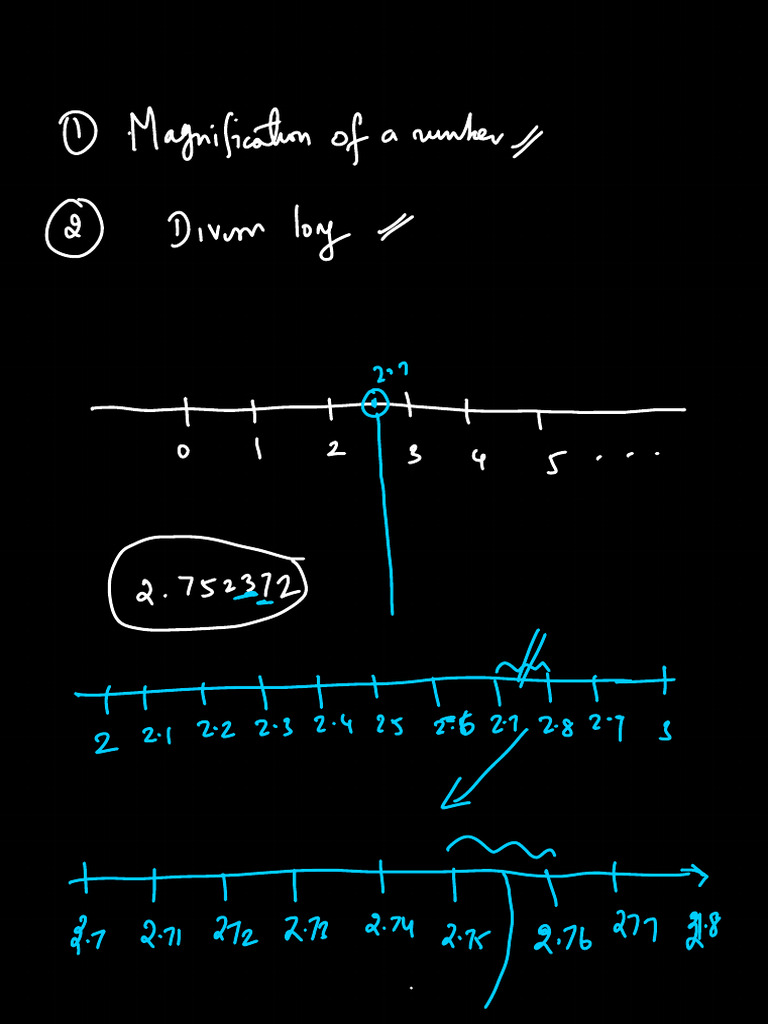 ① Magnification of a number
② Division log
2.7
0 1 2 3 4 5 . . .
2.752372
2 2.1 2.2 2.3 2.4 25 2.6 2.7 2.8 2.9 3
2.7 2.71 272 2.73 2.74 2.75 2.76 277 2.8